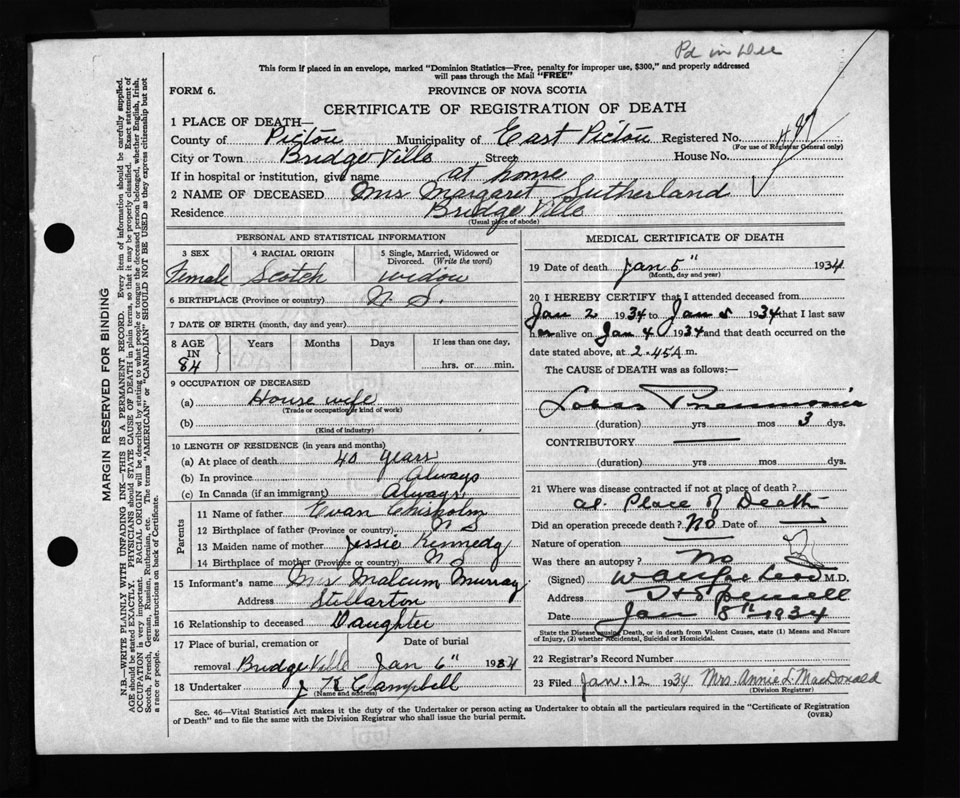 Pd in Dec
This form if placed in an envelope, marked "Dominion Statistics—Free, penalty for improper use, $300," and properly addressed
will pass through the Mail "FREE"
FORM 6.
PROVINCE OF NOVA SCOTIA
CERTIFICATE OF REGISTRATION OF DEATH
1 PLACE OF DEATH—
County of Pictou Municipality of East Pictou Registered No. 487
(For use of Registrar General only)
City or Town Bridge Ville Street House No.
If in hospital or institution, give name at home
2 NAME OF DECEASED Mrs Margaret Sutherland
Residence Bridge Ville
(Usual place of abode)
PERSONAL AND STATISTICAL INFORMATION
3 SEX Female
4 RACIAL ORIGIN Scotch
5 Single, Married, Widowed or Divorced. (Write the word) widow
6 BIRTHPLACE (Province or country) N. S.
7 DATE OF BIRTH (month, day and year)
8 AGE IN 84 Years Months Days If less than one day, hrs. or min.
9 OCCUPATION OF DECEASED
(a) House wife
(Trade or occupation or kind of work)
(b)
(Kind of industry)
10 LENGTH OF RESIDENCE (in years and months)
(a) At place of death 40 years
(b) In province Always
(c) In Canada (if an immigrant) Always
Parents
11 Name of father Evan Chisholm
12 Birthplace of father (Province or country) N S
13 Maiden name of mother Jessie Kennedy
14 Birthplace of mother (Province or country) N S
15 Informant's name Mrs Malcum Murray
Address Stellarton
16 Relationship to deceased Daughter
17 Place of burial, cremation or Date of burial
removal Bridge Ville Jan 6" 1934
18 Undertaker J K Campbell
(Name and address)
MEDICAL CERTIFICATE OF DEATH
19 Date of death Jan 5" 1934
(Month, day and year)
20 I HEREBY CERTIFY that I attended deceased from
Jan 2 1934 to Jan 5 1934 that I last saw
her alive on Jan 4 1934 and that death occurred on
date stated above, at 2.45 A. m.
The CAUSE of DEATH was as follows:—
Lobar Pneumonia
(duration) yrs mos 3 dys.
CONTRIBUTORY
(duration) yrs mos dys.
21 Where was disease contracted if not at place of death?
at Place of Death
Did an operation precede death? No Date of
Nature of operation
Was there an autopsy? No
(Signed) M.D.
Address
Date Jan 8th 1934
State the Disease causing Death, or in death from Violent Causes, state (1) Means and Nature
of Injury, (2) whether Accidental, Suicidal or Homicidal.
22 Registrar's Record Number
23 Filed Jan. 12 1934 Mrs. Annie L. MacDonald
(Division Registrar)
Sec. 46—Vital Statistics Act makes it the duty of the Undertaker or person acting as Undertaker to obtain all the particulars required in the "Certificate of Registration
of Death" and to file the same with the Division Registrar who shall issue the burial permit.
(OVER)
MARGIN RESERVED FOR BINDING
N.B.—WRITE PLAINLY WITH UNFADING INK—THIS IS A PERMANENT RECORD. Every item of information should be carefully supplied.
AGE should be stated EXACTLY. PHYSICIANS should STATE CAUSE OF DEATH in plain terms, so that it may be properly classified. Exact statement of
OCCUPATION is very important. RACIAL ORIGIN will be described by stating to what people or tongue the deceased person belonged, whether English, Irish,
Scotch, French, German, Russian, Ruthenian, etc. The terms "AMERICAN" or "CANADIAN" SHOULD NOT BE USED as they express citizenship but not
a race or people. See instructions on back of Certificate.